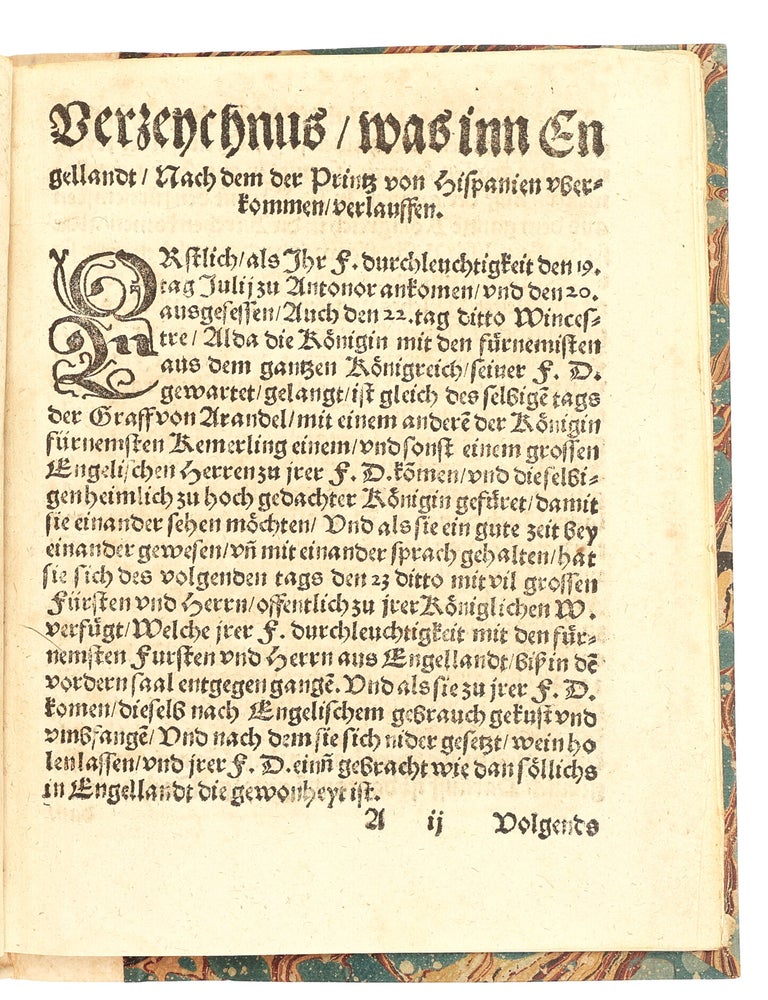 Verzeychnus / was inn En
gellandt / Nach dem der Printz von Hispanien vber-
kommen / verlauffen.
ERstlich / als Ihr F. durchleuchtigkeit den 19.
tag Julij zu Antonor ankomen / vnd den 20.
ausgesessen / Auch den 22. tag ditto Winces-
tre / Alda die Königin mit den fürnemisten
aus dem gantzen Königreich / seiner F. D.
gewartet / gelangt / ist gleich des selbigẽ tags
der Graff von Arandel / mit einem anderẽ der Königin
fürnemsten Kemerling einem / vnd sonst einem grossen
Engelischen Herren zu jrer F. D. kõmen / vnd dieselbi-
gen heimlich zu hoch gedachter Königin gefüret / damit
sie einander sehen möchten / Vnd als sie ein gute zeit bey
einander gewesen / vñ mit einander sprach gehalten / hat
sie sich des volgenden tags den 23 ditto mit vil grossen
Fürsten vnd Herrn / offentlich zu jrer Königlichen W.
verfügt / Welche jrer F. durchleuchtigkeit mit den für-
nemsten Fursten vnd Herrn aus Engellandt / biß in dẽ
vordern saal entgegen gangẽ. Vnd als sie zu jrer F. D.
komen / dieselb nach Engelischem gebrauch gekust vnd
vmbfangẽ / Vnd nach dem sie sich nider gesetzt / wein ho
len lassen / vnd jrer F. D. einñ gebracht wie dan söllichs
in Engellandt die gewonheyt ist.
A ij Volgends